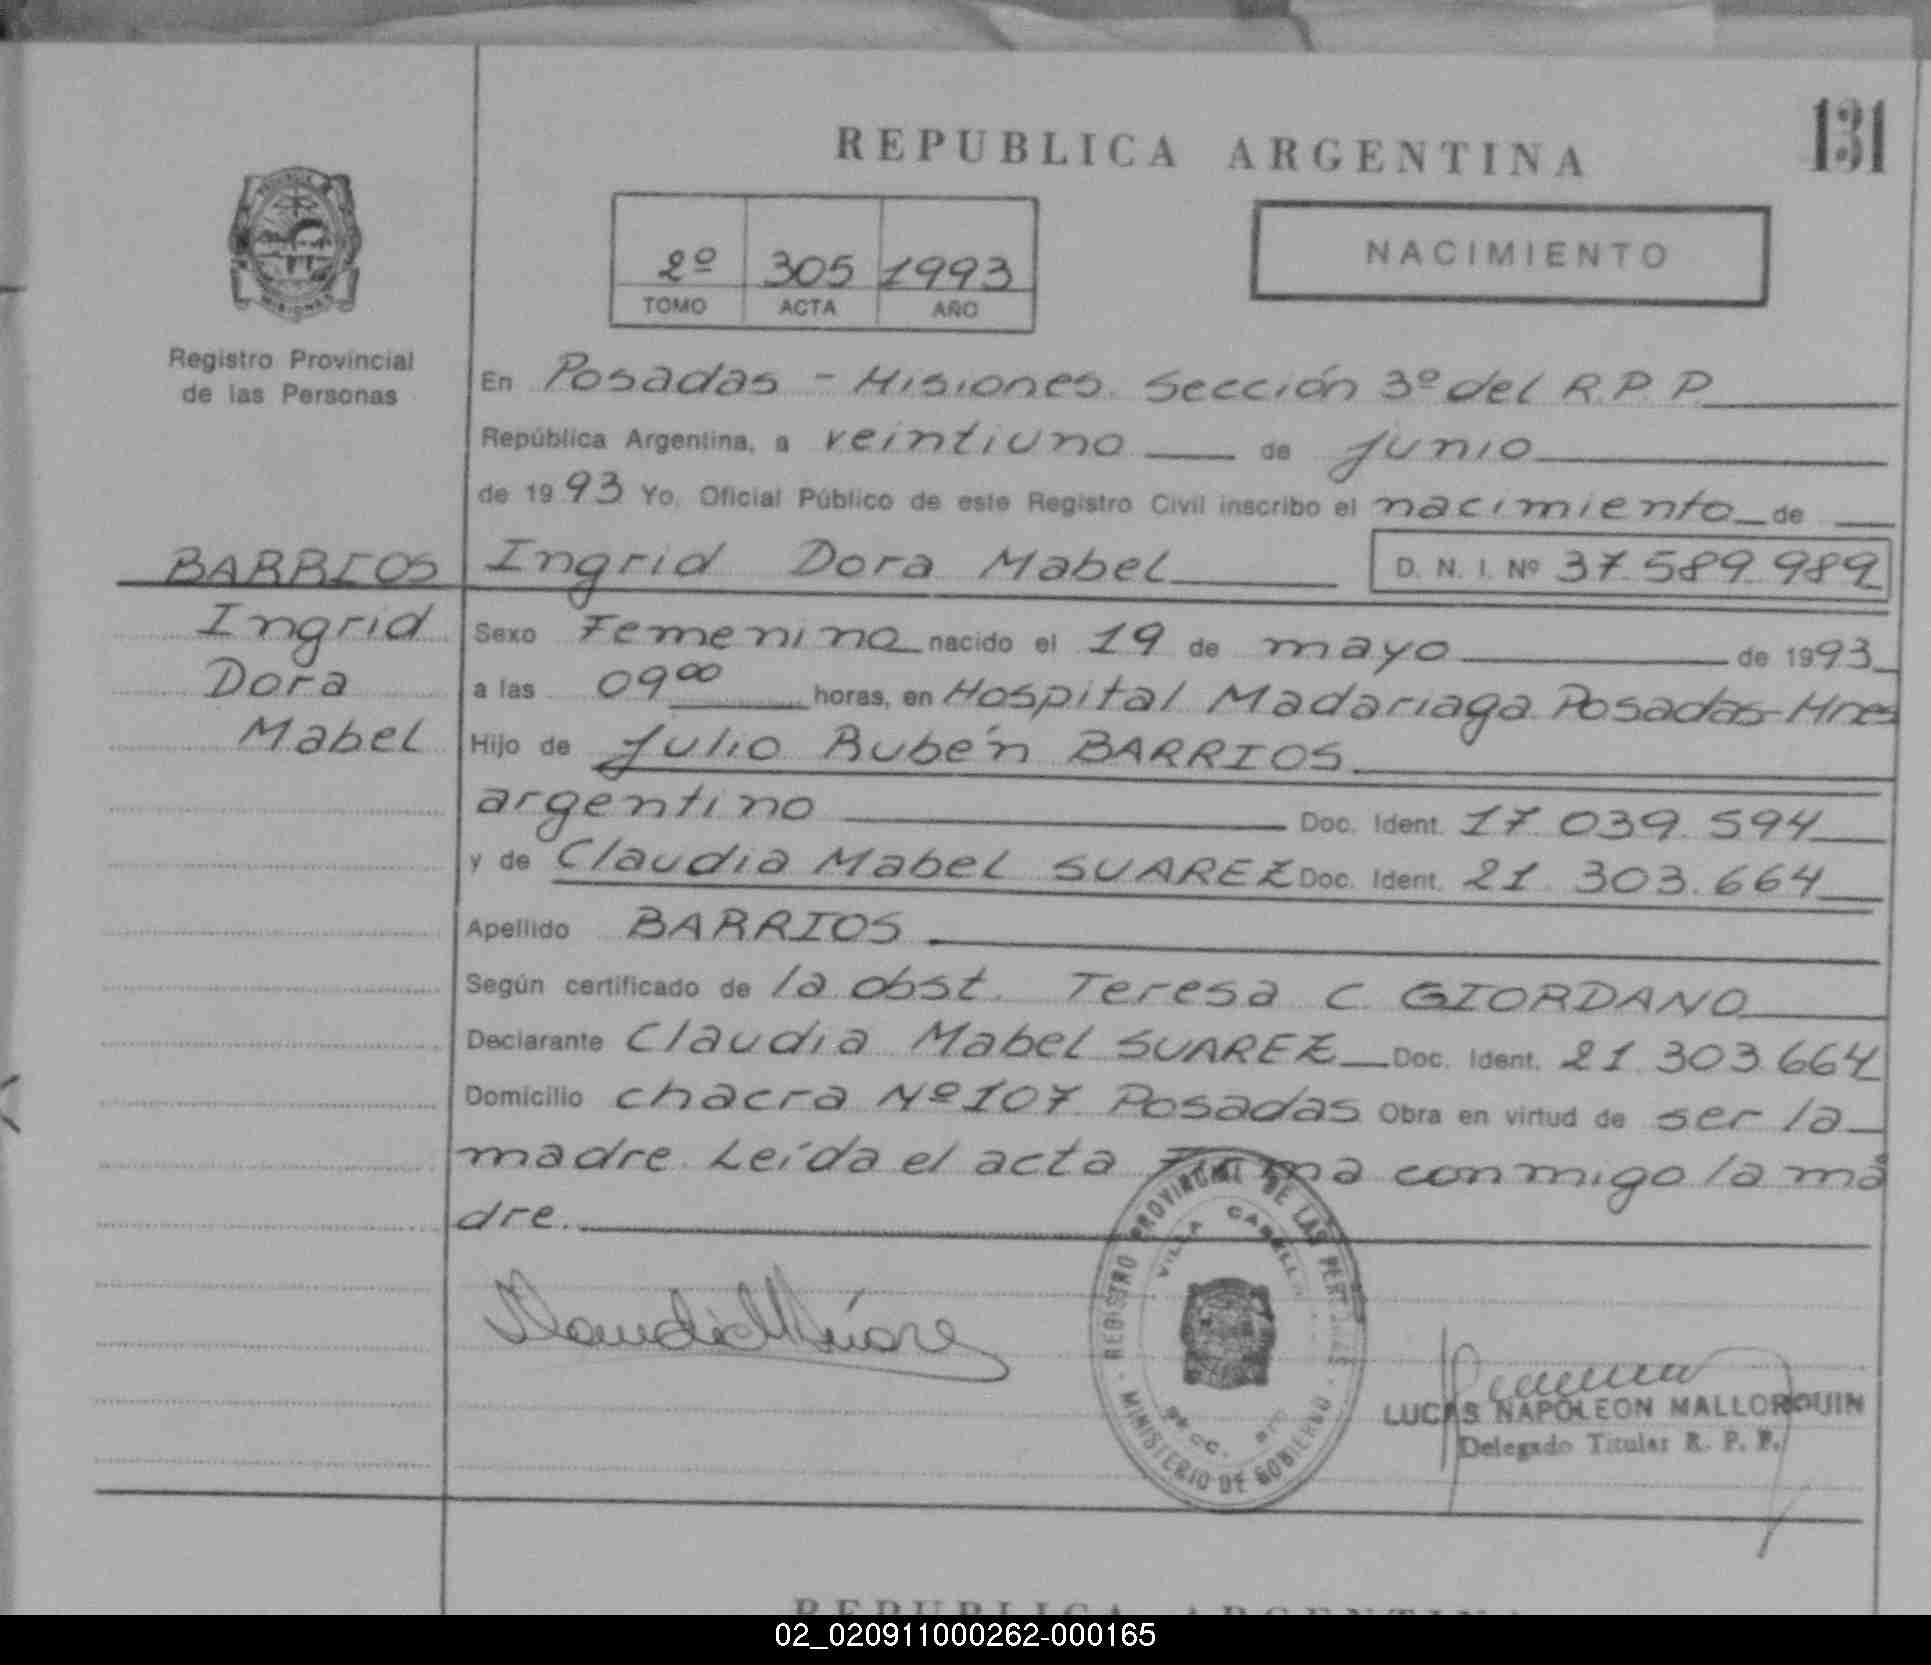 131
REPUBLICA ARGENTINA
NACIMIENTO
2º 305 1993
TOMO ACTA AÑO
MISIONES
Registro Provincial
de las Personas
En Posadas - Misiones. Sección 3º del R.P.P.
República Argentina, a veintiuno de junio
de 1993 Yo, Oficial Público de este Registro Civil inscribo el nacimiento de
BARRIOS Ingrid Dora Mabel D. N. I. Nº 37.589.989
Ingrid
Dora
Mabel
Sexo Femenino nacido el 19 de mayo de 1993
a las 09⁰⁰ horas, en Hospital Madariaga Posadas-Mnes
Hijo de Julio Rubén BARRIOS
argentino Doc. Ident. 17.039.594
y de Claudia Mabel SUAREZ Doc. Ident. 21.303.664
Apellido BARRIOS
Según certificado de la obst. Teresa C. GIORDANO
Declarante Claudia Mabel SUAREZ Doc. Ident. 21.303.664
Domicilio chacra Nº 107 Posadas Obra en virtud de ser la
madre. Leída el acta Firma conmigo la ma
dre.
REGISTRO PROVINCIAL DE LAS PERSONAS
VILLA CABELLO
MINISTERIO DE GOBIERNO
LUCAS NAPOLEON MALLORQUIN
Delegado Titular R. P. P.
REPUBLICA ARGENTINA
02_020911000262-000165